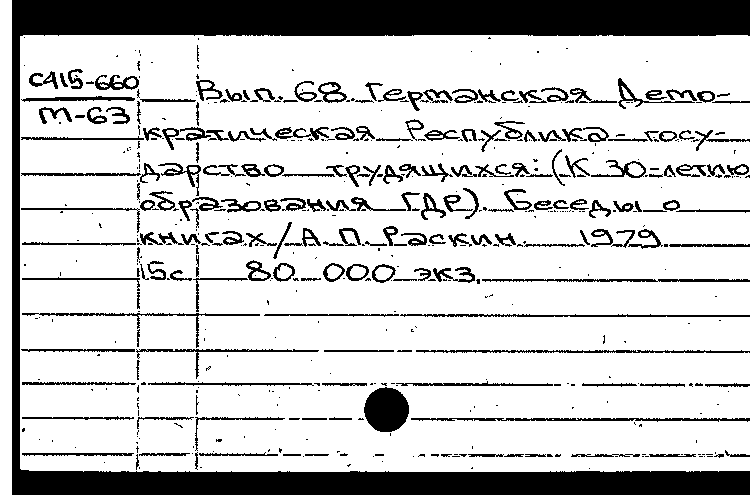 С415-660
М-63
Вып. 68. Германская Демо-
кратическая Республика - госу-
дарство трудящихся: (К 30-летию
образования ГДР). Беседы о
книгах/А.П. Раскин. 1979.
15с 80 000 экз.